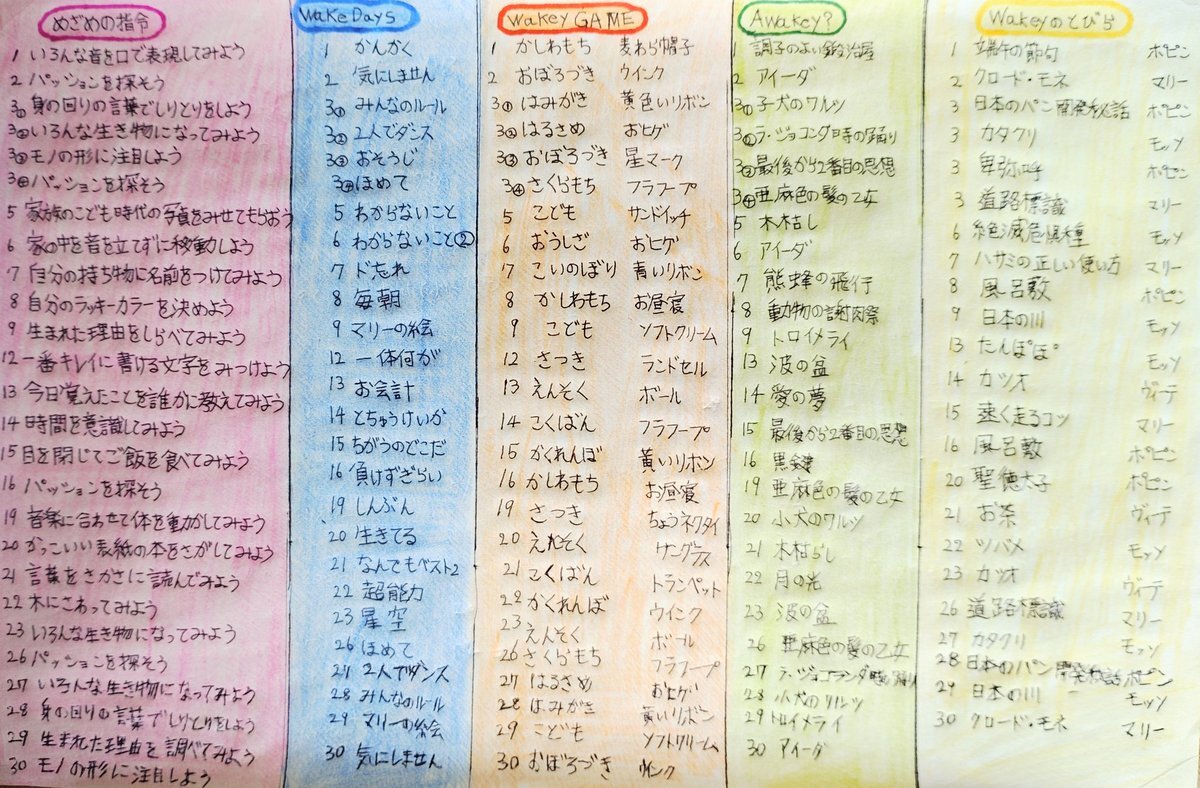 めざめの指令
1 いろんな音を口で表現してみよう
2 パッションを探そう
3① 身の回りの言葉でしりとりをしよう
3② いろんな生き物になってみよう
3③ モノの形に注目しよう
3④ パッションを探そう
5 家族のこども時代の写真をみせてもらおう
6 家の中を音を立てずに移動しよう
7 自分の持ち物に名前をつけてみよう
8 自分のラッキーカラーを決めよう
9 生まれた理由をしらべてみよう
12 一番キレイに書ける文字をみつけよう
13 今日覚えたことを誰かに教えてみよう
14 時間を意識してみよう
15 目を閉じてご飯を食べてみよう
16 パッションを探そう
19 音楽に合わせて体を動かしてみよう
20 かっこいい表紙の本をさがしてみよう
21 言葉をさかさに読んでみよう
22 木にさわってみよう
23 いろんな生き物になってみよう
26 パッションを探そう
27 いろんな生き物になってみよう
28 身の回りの言葉でしりとりをしよう
29 生まれた理由を調べてみよう
30 モノの形に注目しよう
WakeDays
1 かんかく
2 気にしません
3① みんなのルール
3② 2人でダンス
3③ おそうじ
3④ ほめて
5 わからないこと
6 わからないこと②
7 ド忘れ
8 毎朝
9 マリーの絵
12 一体何が
13 お会計
14 とちゅうけいか
15 ちがうのどこだ
16 負けずぎらい
19 しんぶん
20 生きてる
21 なんでもベスト2
22 超能力
23 星空
26 ほめて
27 2人でダンス
28 みんなのルール
29 マリーの絵
30 気にしません
Wakey GAME
1 かしわもち 麦わら帽子
2 おぼろづき ウインク
3① はみがき 黄色いリボン
3② はるさめ おヒゲ
3③ おぼろづき 星マーク
3④ さくらもち フラフープ
5 こども サンドイッチ
6 おうしざ おヒゲ
7 こいのぼり 青いリボン
8 かしわもち お昼寝
9 こども ソフトクリーム
12 さつき ランドセル
13 えんそく ボール
14 こくばん フラフープ
15 かくれんぼ 黄いリボン
16 かしわもち お昼寝
19 さつき ちょうネクタイ
20 えんそく サングラス
21 こくばん トランペット
22 かくれんぼ ウインク
23 えんそく ボール
26 さくらもち フラフープ
27 はるさめ おヒゲ
28 はみがき 黄いリボン
29 こども ソフトクリーム
30 おぼろづき ウインク
Awakey?
1 調子のよい鍛冶屋
2 アイーダ
3① 子犬のワルツ
3② ラ・ジョコンダ時の踊り
3③ 最後から2番目の思想
3④ 亜麻色の髪の乙女
5 木枯し
6 アイーダ
7 熊蜂の飛行
8 動物の謝肉祭
9 トロイメライ
13 波の盆
14 愛の夢
15 最後から2番目の思想
16 黒鍵
19 亜麻色の髪の乙女
20 小犬のワルツ
21 木枯らし
22 月の光
23 波の盆
26 亜麻色の髪の乙女
27 ラ・ジョコンダ時の踊り
28 小犬のワルツ
29 トロイメライ
30 アイーダ
Wakeyのとびら
1 端午の節句 ポピン
2 クロード・モネ マリー
3 日本のパン開発秘話 ポピン
3 カタクリ モッソ
3 卑弥呼 ポピン
3 道路標識 マリー
6 絶滅危惧種 モッソ
7 ハサミの正しい使い方 マリー
8 風呂敷 ポピン
9 日本の川 モッソ
13 たんぽぽ モッソ
14 カツオ ヴィテ
15 速く走るコツ マリー
16 風呂敷 ポピン
20 聖徳太子 ポピン
21 お茶 ヴィテ
22 ツバメ モッソ
23 カツオ ヴィテ
26 道路標識 マリー
27 カタクリ モッソ
28 日本のパン開発秘話 ポピン
29 日本の川 モッソ
30 クロード・モネ マリー